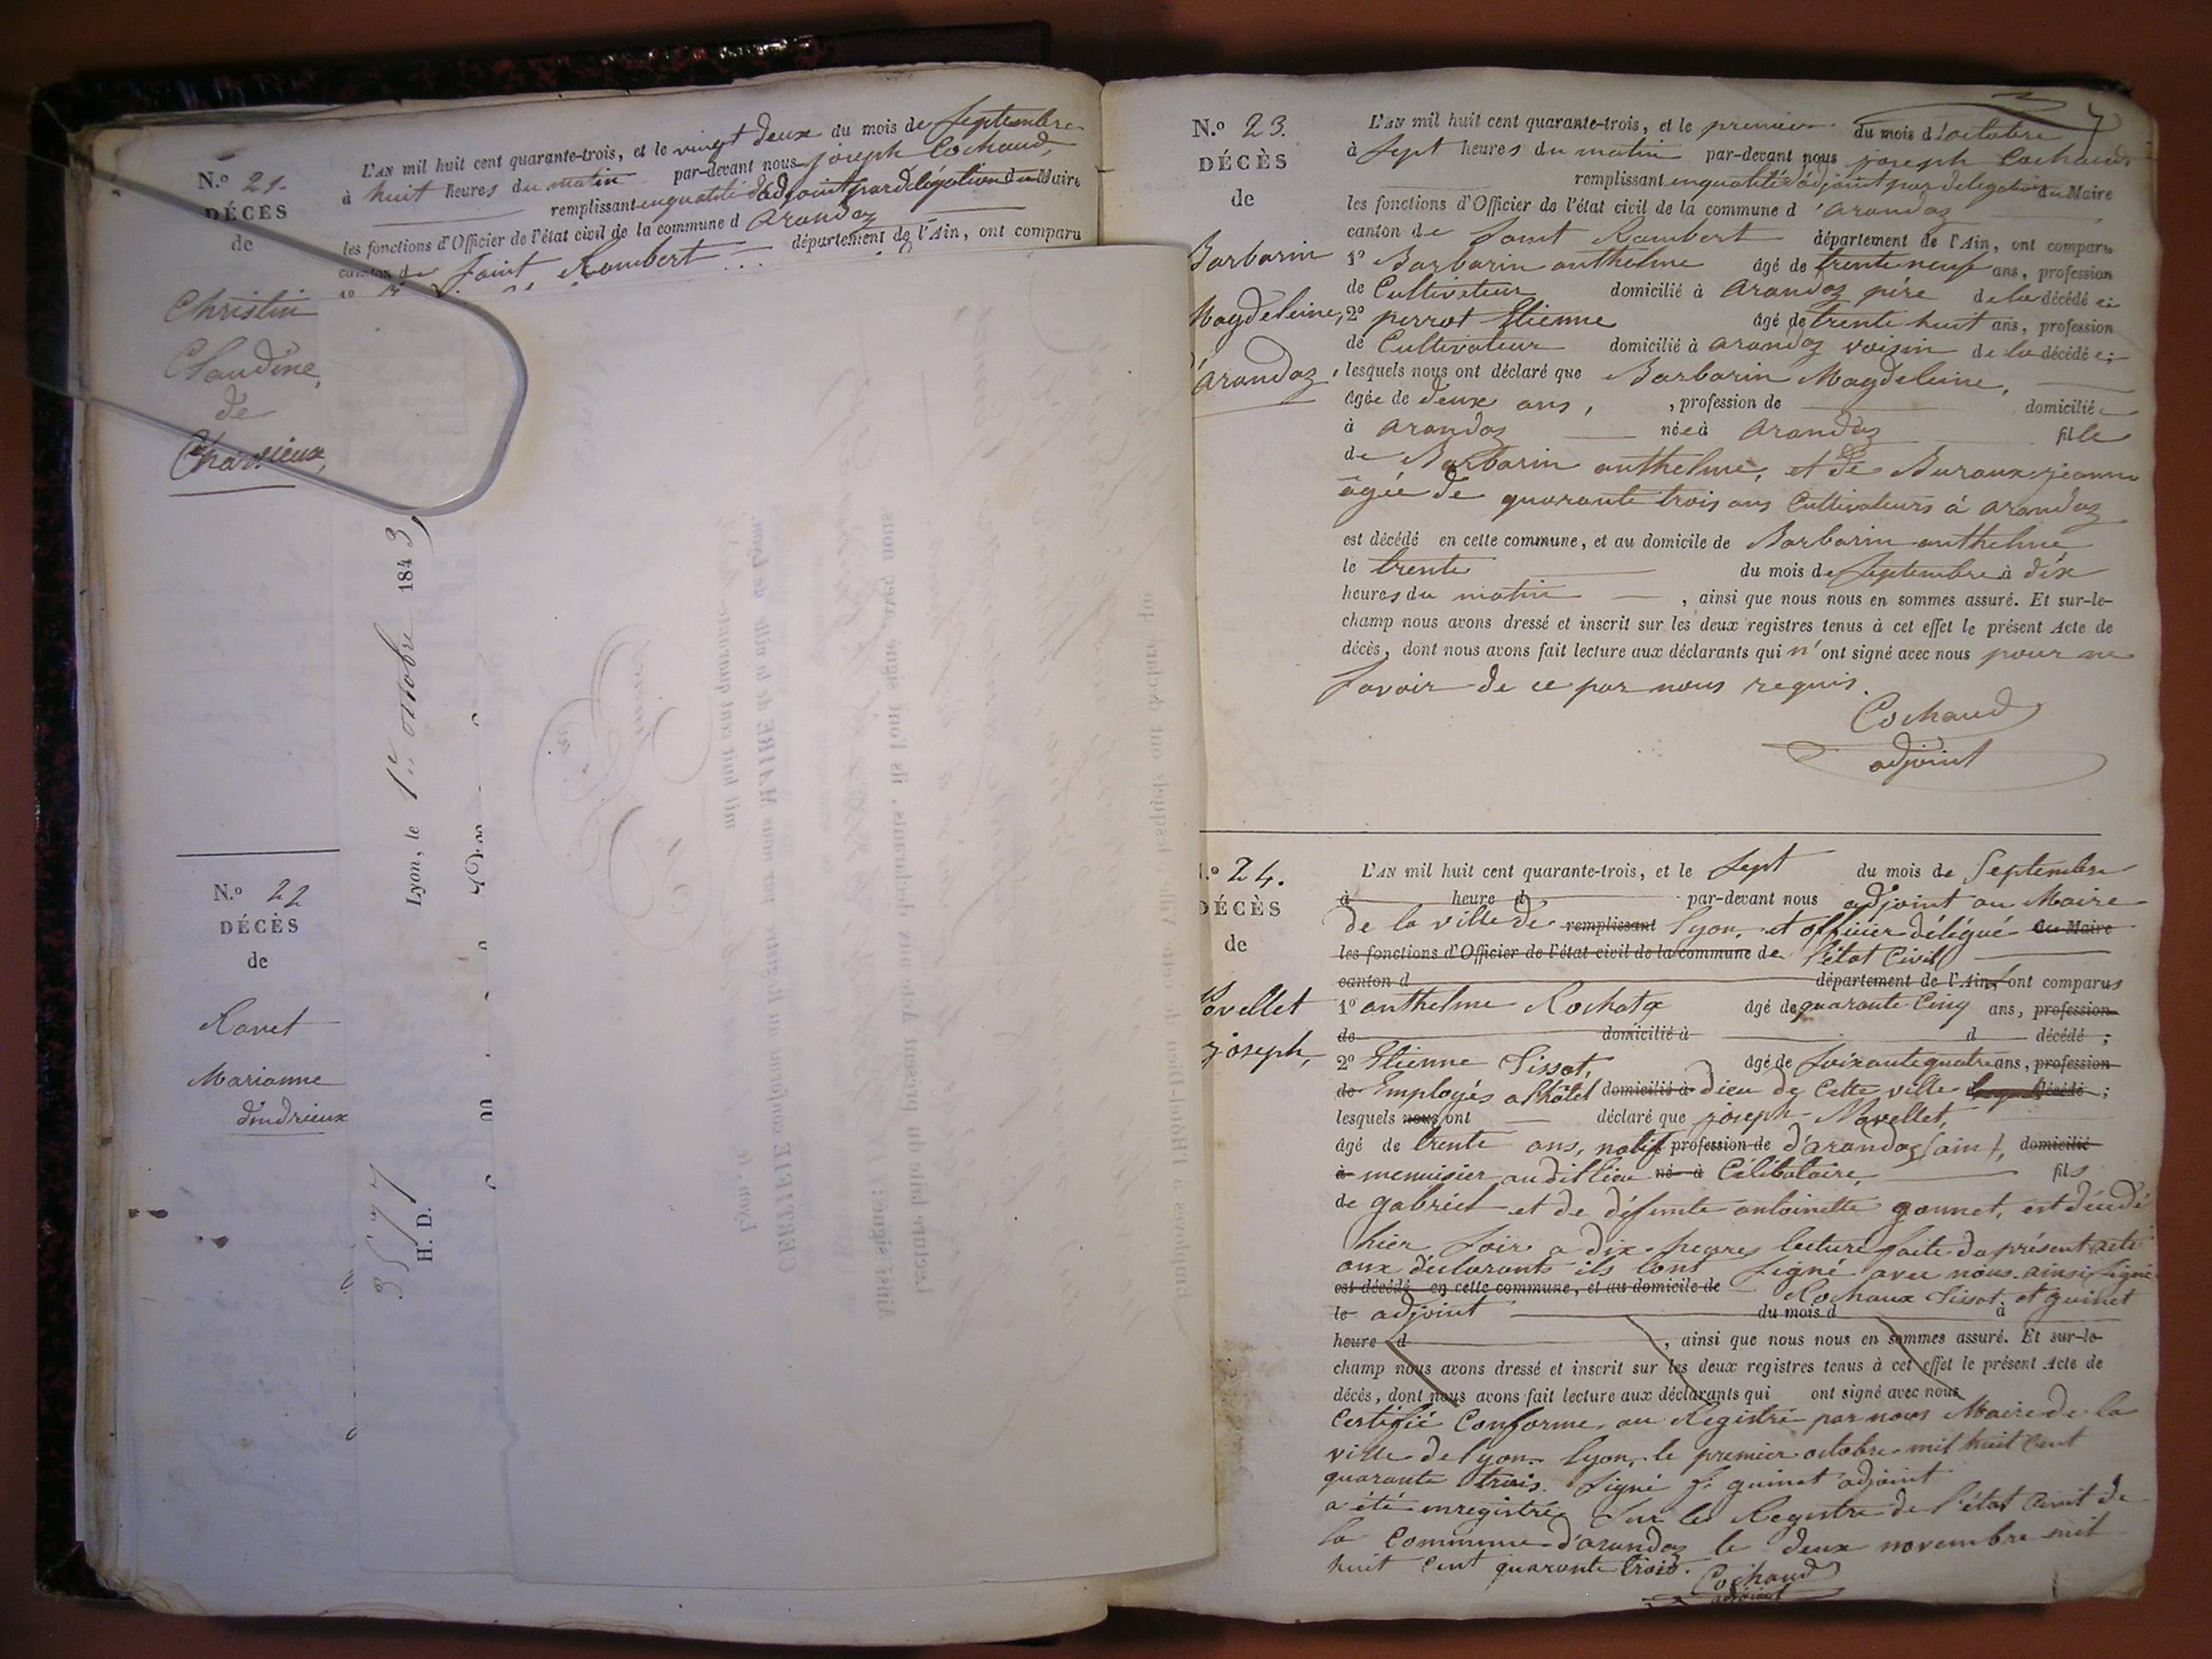 N.º 21.
DÉCÈS
de
Christin
Claudine,
de
Charvieux,
L'AN mil huit cent quarante-trois, et le vingt deux du mois de Septembre
à huit heures du matin par-devant nous joseph Cochaud,
remplissant en qualité d'adjoint par délégation du Maire
les fonctions d'Officier de l'état civil de la commune d arandaz
canton de Saint Rambert département de l'Ain, ont comparu
1º
N.º 22
DÉCÈS
de
Ravet
Marianne
d'indrieux
Lyon, le 1er octobre 1843
3577
H. D.
N.º 23.
DÉCÈS
de
Barbarin
Magdeleine,
d'arandaz,
L'AN mil huit cent quarante-trois, et le premier du mois d'octobre
à Sept heures du matin par-devant nous joseph Cochaud,
remplissant en qualité d'adjoint par délégation du Maire
les fonctions d'Officier de l'état civil de la commune d'arandaz
canton de Saint Rambert département de l'Ain, ont comparu
1º Barbarin anthelme âgé de trente neuf ans, profession
de Cultivateur domicilié à arandaz père de la décédée;
2º perrot Etienne âgé de trente huit ans, profession
de Cultivateur domicilié à arandaz voisin de la décédée;
lesquels nous ont déclaré que Barbarin Magdeleine,
âgée de deux ans, , profession de domiciliée
à arandaz née à arandaz fille
de Barbarin anthelme, et de Buraux jeanne
agée de quarante trois ans Cultivateurs à arandaz
est décédé en cette commune, et au domicile de Barbarin anthelme
le trente du mois de Septembre à dix
heures du matin , ainsi que nous nous en sommes assuré. Et sur-le-
champ nous avons dressé et inscrit sur les deux registres tenus à cet effet le présent Acte de
décès, dont nous avons fait lecture aux déclarants qui n'ont signé avec nous pour ne
Savoir de ce par nous requis.
Cochaud
adjoint
N.º 24.
DÉCÈS
de
Navellet
joseph,
L'AN mil huit cent quarante-trois, et le Sept du mois de Septembre
à heure d par-devant nous adjoint au Maire
de la ville de remplissant Lyon, et officier délégué du Maire
les fonctions d'Officier de l'état civil de la commune de l'état Civil
canton d département de l'Ain, ont comparus
1º anthelme Rochatx âgé de quarante Cinq ans, profession
de domicilié à d décédé ;
2º Etienne Tissot, âgé de Soixante quatre ans, profession
de Employés a l'hôtel domicilié à dieu de Cette ville décédé ;
lesquels nous ont déclaré que joseph Navellet,
âgé de trente ans, natif profession de d'arandaz (ain), domicilié
à menuisier audit lieu né à Célibataire, fils
de gabriel et de défunte antoinette gonnet, est décédé
hier Soir a dix heures lecture faite du présent acte
aux déclarants ils l'ont Signé avec nous. ainsi Signé
est décédé en cette commune, et au domicile de Rochaux Tissot et guinet
le adjoint du mois d à
heure d , ainsi que nous nous en sommes assuré. Et sur-le-
champ nous avons dressé et inscrit sur les deux registres tenus à cet effet le présent Acte de
décès, dont nous avons fait lecture aux déclarants qui ont signé avec nous
Certifié Conforme au Registre par nous Maire de la
ville de Lyon. Lyon, le premier octobre mil huit Cent
quarante trois. Signé fs guinet adjoint
a été enregistré Sur les Registre de l'état Civil de
la Commune d'arandaz le deux novembre mil
huit Cent quarante trois. Cochaud
adjoint